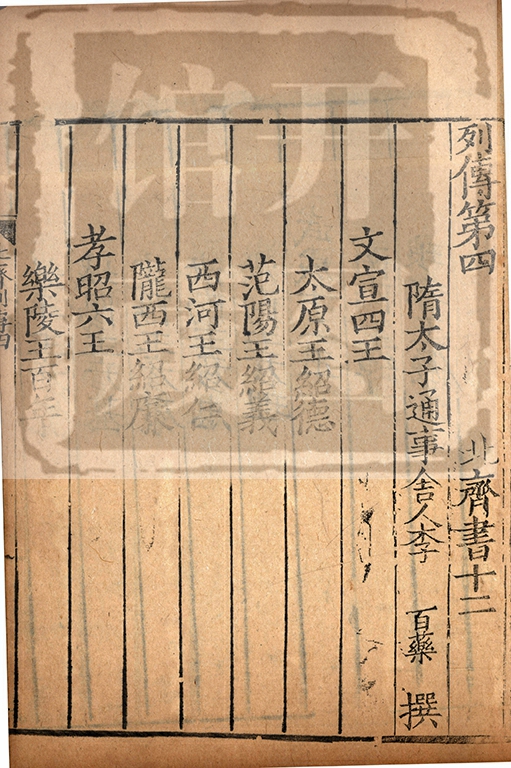 列傳第四 北齊書十二
隋太子通事舍人李 百藥 撰
文宣四王
太原王紹德
范陽王紹義
西河王紹仁
隴西王紹廉
孝昭六王
樂陵王百年